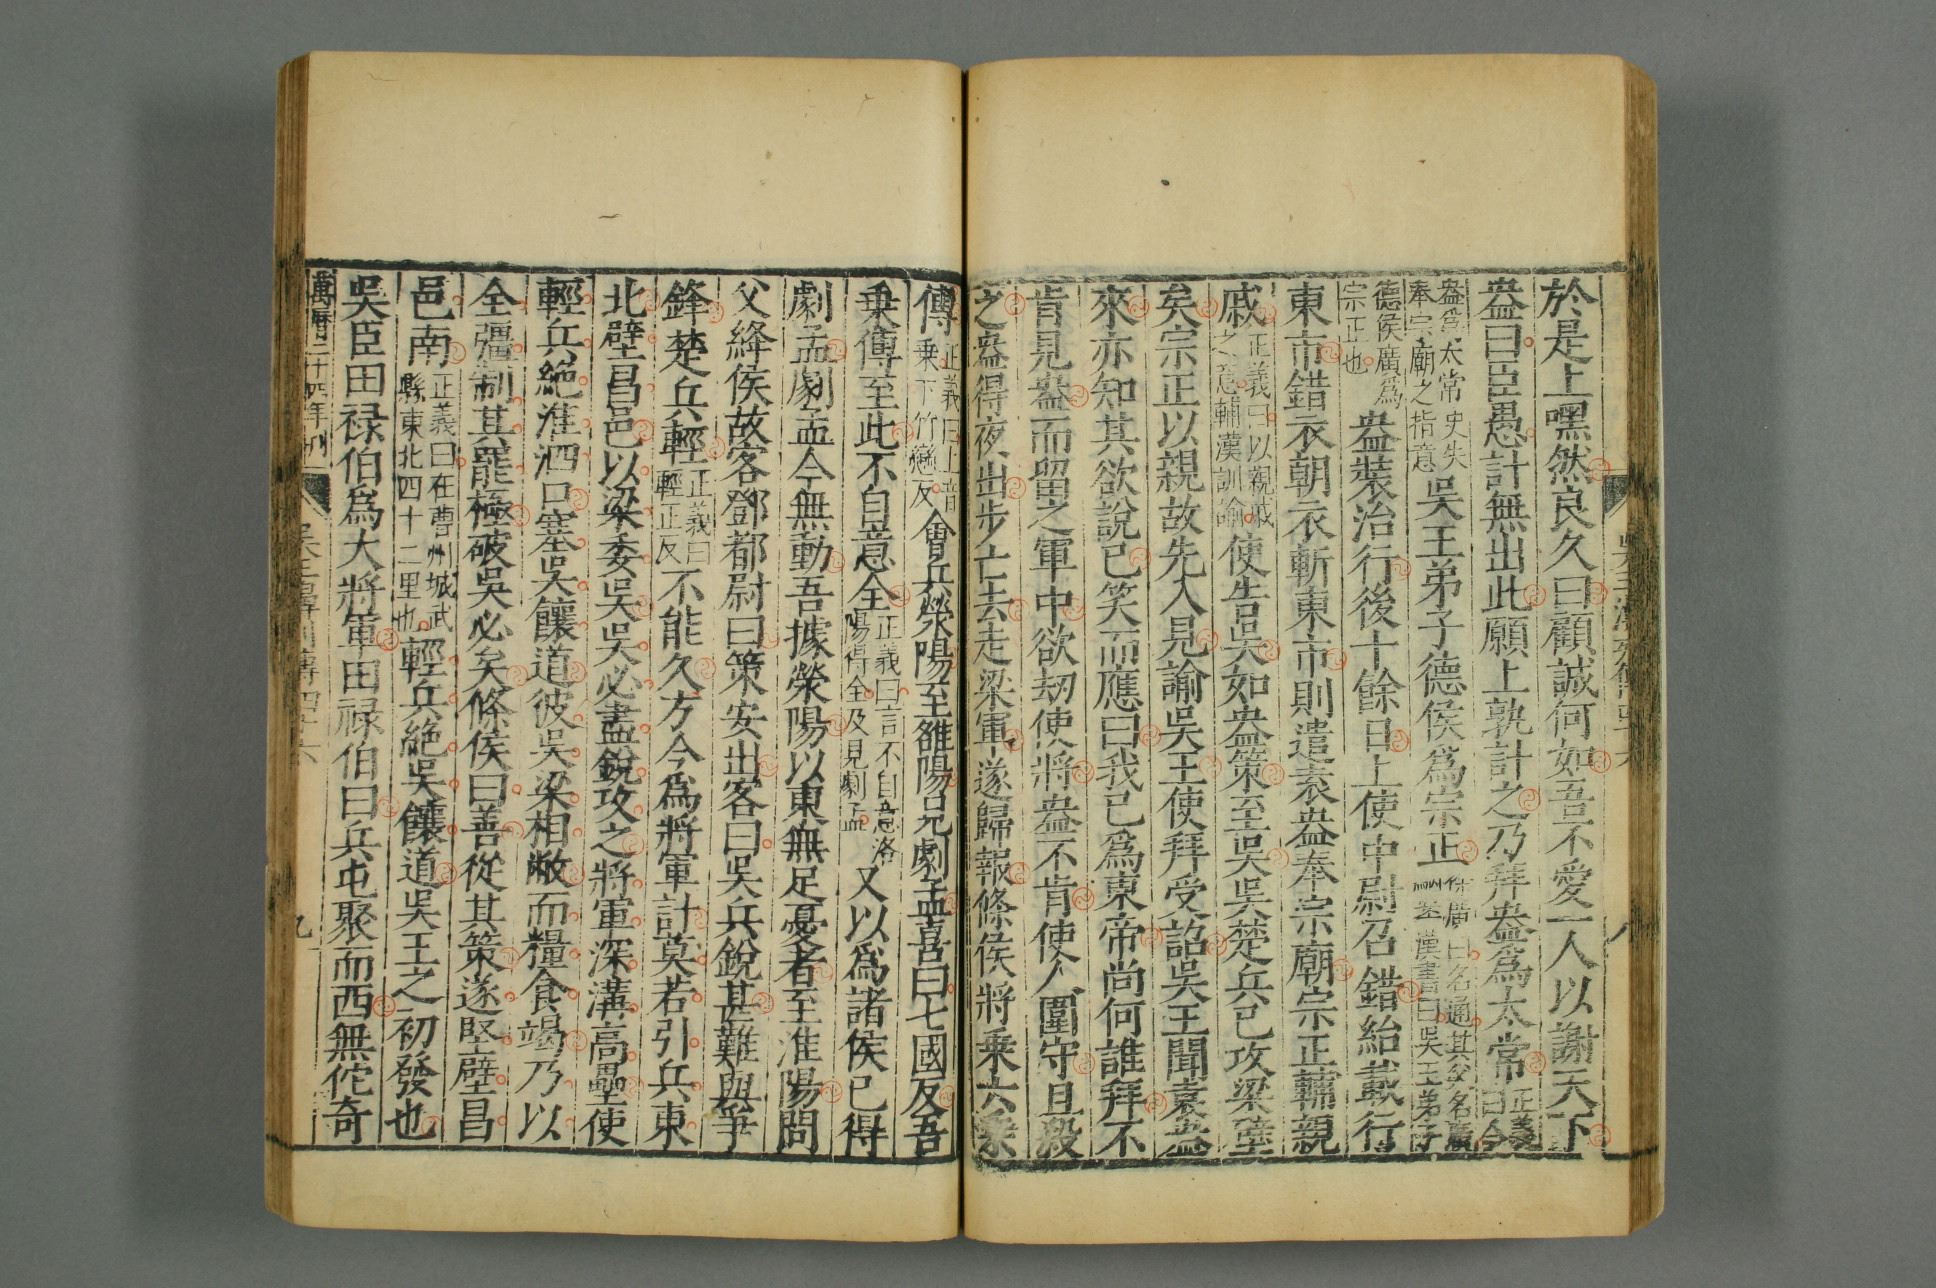 於是上嘿然良久曰顧誠何如吾不愛一人以謝天下
盎曰臣愚計無出此願上孰計之乃拜盎爲太常正義曰令
盎爲太常史失奉宗廟之指意吳王弟子德侯爲宗正徐廣曰名通其父名廣駰案漢書曰吳王弟子
德侯廣爲宗正也盎裝治行後十餘日上使中尉召錯紿載行
東市錯衣朝衣斬東市則遣袁盎奉宗廟宗正輔親
戚正義曰以親戚之意輔漢訓諭使告吳如盎策至吳吳楚兵已攻梁壁
矣宗正以親故先入見諭吳王使拜受詔吳王聞袁盎
來亦知其欲說已笑而應曰我已爲東帝尚何誰拜不
肯見盎而留之軍中欲劫使將盎不肯使人圍守且殺
之盎得夜出步亡去走梁軍遂歸報條侯將乗六乘
傳正義曰上音乗下竹戀反會兵滎陽至雒陽見劇孟喜曰七國反吾
乗傳至此不自意全正義曰言不自意洛陽得全及見劇孟又以爲諸侯已得
劇孟劇孟今無動吾據滎陽以東無足憂者至淮陽問
父絳侯故客鄧都尉曰策安出客曰吳兵銳甚難與爭
鋒楚兵輕正義曰輕正反不能久方今爲將軍計莫若引兵東
北壁昌邑以梁委吳吳必盡銳攻之將軍深溝高壘使
輕兵絕淮泗口塞吳饟道彼吳梁相敝而糧食竭乃以
全彊制其罷極破吳必矣條侯曰善從其策遂堅壁昌
邑南正義曰在曹州城武縣東北四十二里也輕兵絕吳饟道吳王之初發也
吳臣田祿伯爲大將軍田祿伯曰兵屯聚而西無佗奇
萬曆二十四年刊
九